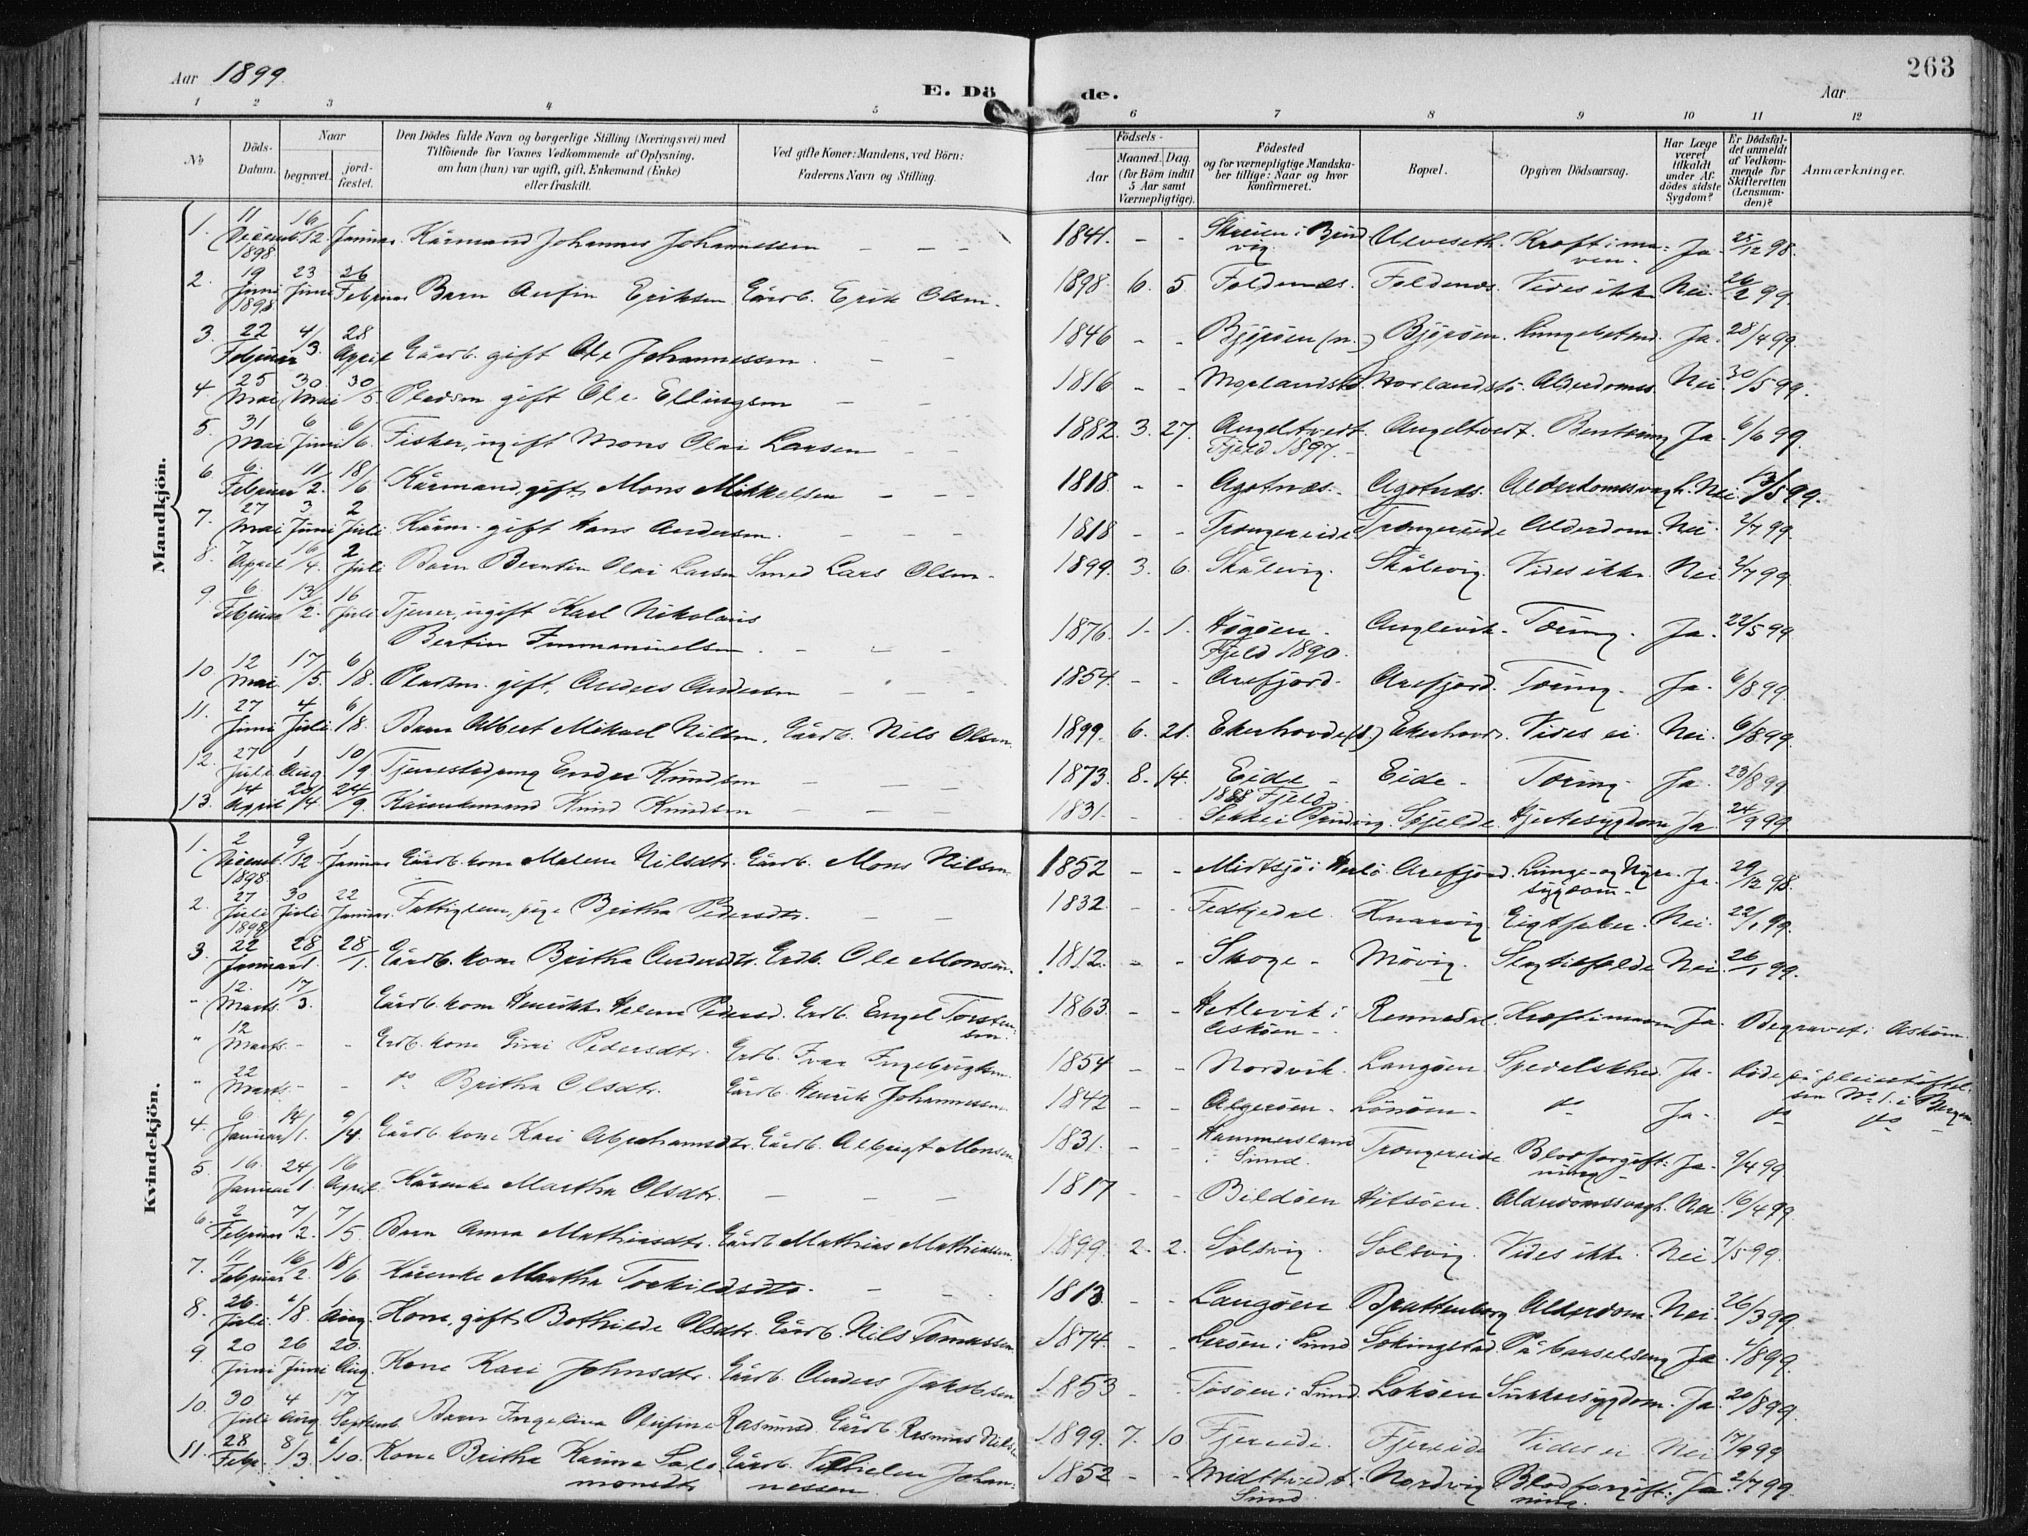 Aar 1899. E. Dö
de. Aar 263
1 2 3 4 5 6 7 8 9 10 11 12
No
Döds-Datum.
Naar begravet. jordfæstet.
Den Dödes fulde Navn og borgerlige Stilling (Næringsvei) med
Tilföiende for Voxnes Vedkommende af Oplysning,
om han (hun) var ugift, gift, Enkemand (Enke)
eller fraskilt.
Ved gifte Koner: Mandens, ved Börn:
Faderens Navn og Stilling.
Födsels-
Aar Maaned. Dag.
(for Börn indtil 5 Aar samt Værnepligtige).
Födested
og for værnepligtige Mandskaber tillige: Naar og hvor konfirmeret.
Bopæl.
Opgiven Dödsaarsag.
Har Læge været tilkaldt under Afdödes sidste Sygdom?
Er Dödsfaldet anmeldt af Vedkommende for Skifteretten (Lensmanden)?
Anmærkninger.
Mandkjön.
1. 11 Decemb. 1898 16/12. 1 Januar. Kårmand Johannes Johannessen – – – 1841. – – Ulveseth. Kræft i maven. Ja. 28/12 98.
2. 19 Juni 1898 23 Juni 26 Februar Barn Anfin Eriksen Gårdb. Erik Olsen. 1898. 6. 5 Foldenæs. Foldenæs. Vides ikke Nei. 26/2 99
3. 22 Februar 4/3. 28 April Gårdb. gift Ole Johannessen. – – 1846 – – Bjørøen (n.) Bjørøen. Ja. 28/4 99.
4 25 Mai 30 Mai 30/5. Pladsm. gift Ole Ellingsen – – – 1816 – – Morlandstø. Morlandstø. Alderdoms. Nei 30/5 99.
5. 31 Mai 6 Juni 6/6. Fisker, ugift Mons Olai Larsen – – 1882. 3. 27. Angeltvedt. Fjeld 1897. Angeltvedt. Ja. 6/6 99.
6 6. Februar 11/2. 18/6 Kårmand, gift, Mons Mikkelsen – – – 1818. – – Agotnæs. Agotnæs. Alderdomssvagh. Nei. 13/5 99.
7. 27 Mai 3 Juni 2 Juli Kårm. gift Hans Andersen. – – – 1818 – – Trongereide Trongereide Alderdom. Nei. 2/7 99.
8. 7 April 16/4. 2 Juli Barn Berntin Olai Larsen Smed Lars Olsen. 1899. 3. 6. Skålevig. Skålevig. Vides ikke. Nei 2/7 99.
9. 6 Februar 13/2. 16 Juli Tjener, ugift Karl Nikolai
Bertin Immanuelsen. – – – 1876. 1. 1. Høgøen. Fjeld 1890. Anglevik. Tæring. Ja. 22/5 99.
10. 12 Mai. 17/5. 6/8. Pladsm. gift, Anders Andersen – – – 1854. – – Arefjord. Arefjord. Tæring. Ja. 6/8 99.
11. 27 Juni 4 Juli 6/8. Barn Albert Mikael Nilsen. Gårdb. Nils Olsen. 1899. 6. 21. Ekerhovde Ekerhovde. Vides ei. Nei. 6/8 99.
12. 27 Juli 1 Aug. 10/9. Tjenestedreng Endre Knudsen – – 1873. 8. 14. Eide – 1888 Fjeld Eide. Tæring. Ja. 23/8 99
13. 14 April 22/4. 24/9. Kårenkemand Knud Knudsen – – 1831. – – Spjelde. Hjertesygdom Ja 24/9 99
Kvindekjön.
1. 2 Decemb. 1898. 9/12. 1 Januar Gårdb. kone Malene Nilsdtr. Gårdb. Mons Nilsen. 1852 – – Midtsjø i Herlø. Arefjord. Lunge- og Nyresygdom. Ja. 29/12 98.
2. 27 Juli 1898 30 Juli 22 Januar. Fattiglem, pige Britha Pedersdtr. – – 1832. – – Fedtjedal. Knarvig. Gigtfeber. Nei. 22/1 99.
3. 22 Januar 28/1. 28/1. Gårdb. kone Britha Andersdtr. Grdb. Ole Monsen. 1812. – – Skoge – Møvig. Slagtilfælde Nei. 26/1 99.
" 12. Marts. 17/3. Gårdb. kone Henrikke Helene Pedersd. Grdb. Engel Torstensen. 1863. – – Hetlevik i Askøen – Rennedal. Kræft i maven Ja – Begravet i Askøen.
" 12 Marts. – – Grdb. kone Guri Pedersdtr. Grdb. Ivar Ingebrigtsen. 1854 – – Nordvik. Langøen Spedalskhed Ja. Døde på pleiestiftelsen No 1. i Bergen
" 22 Marts. – – Do Britha Olsdtr. Gårdb. Henrik Johannessen 1842 – – Algerøen. Lønøen. Do Ja. Do Do
4. 6. Januar 14/1. 9/4. Gårdb. kone Kari Abrahamsdtr. Gårdb. Albrigt Monsen. 1831. – – Hammersland i Sund. Trongereide Blodforgiftning Ja. 9/4 99
5. 16. Januar 24/1. 16 April. Kårenke Martha Olsdtr. – – – 1817 – – Bildøen Hitsøen. Alderdomssvagh. Nei. 16/4 99.
6. 2 Februar 7/2. 7/5. Barn Anna Mathiasdtr. Gårdb. Mathias Mathiassen. 1899. 2. 2. Solsvig. Solsvig. Vides ikke. Nei 7/5 99.
7. 11 Februar 16/2. 18/6. Kårenke Martha Torkildsdtr. – – 1813. – – Langøen Brattenborg Alderdom. Nei. 26/3 99.
8. 26. Juli /8. 1 Aug. Kone, gift, Bothilde Olsdtr. Gårdb. Nils Tomassen. 1874. – – Lerøen i Sund Sekingstad. På barselseng Ja. /8 99.
9. 20 Juni 26 Juni 20. Aug. Kone Kari Johnsdtr. Gårdb. Anders Jakobsen 1853 – – Tøsøen i Sund. Lokøen Sukkersygdom. Ja. 20/8 99.
10. 30 Juli 4 Aug. 17 Septemb. Barn Ingelina Olufine Rasmusd. Gårdb. Rasmus Nilsen 1899. 7. 10 Fjereide. Fjereide Vides ei Nei 17/9 99
11. 28 Febr. 8/3 /10. Kone Britha Karina Salomonsdtr. Gårdb. Vilhelm Johannessen. 1852 – – Midttvedt. Sund. Nordvig Blodforgiftning. Ja. 2/7 99.